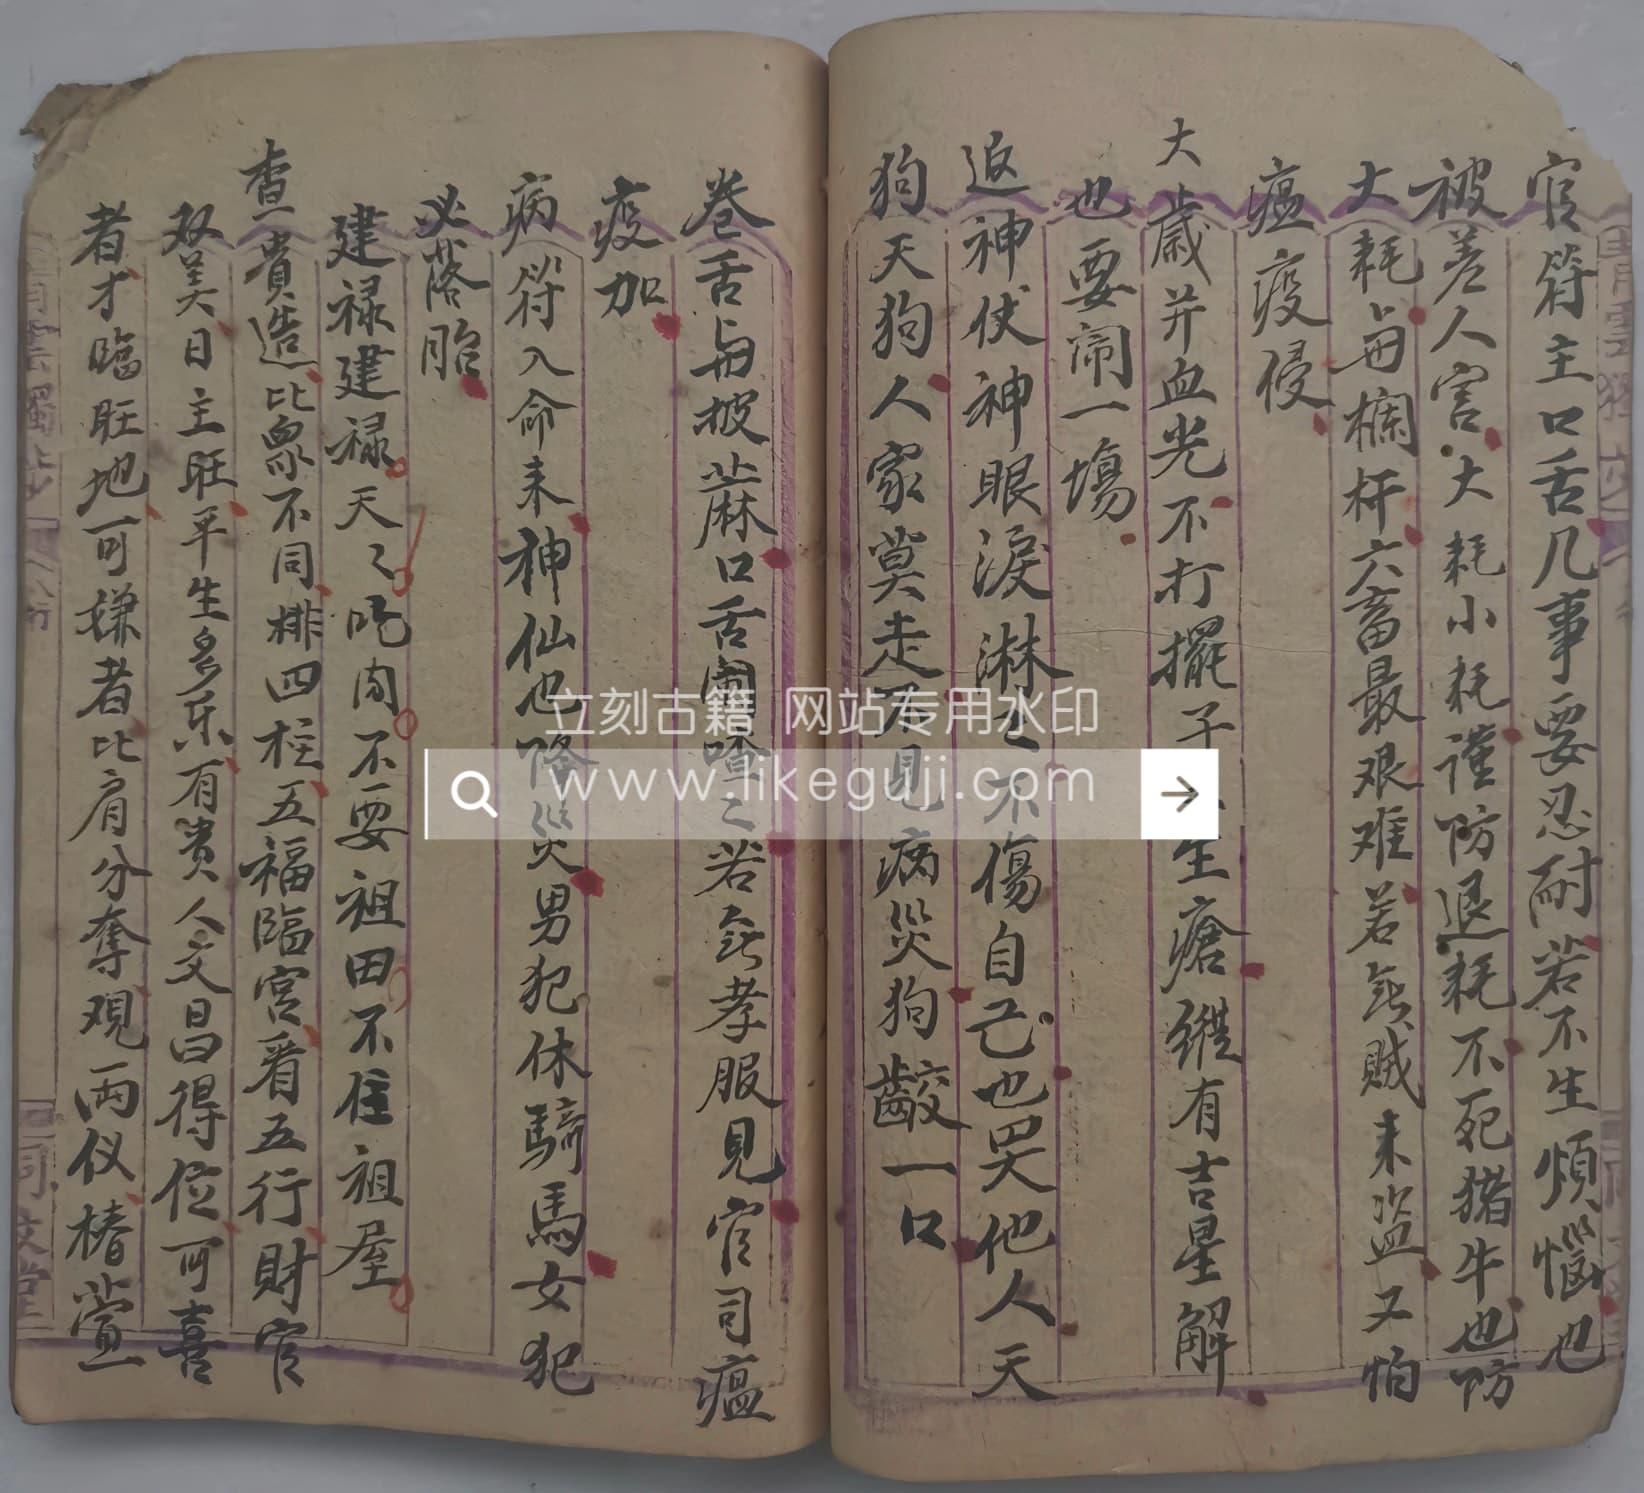 官符主口舌几事要忍耐若不生煩惱也
被差人害大耗小耗谨防退耗不死猪牛也防
大耗与欄杆六畜最艰难若無贼来盗又怕
瘟疫侵
大歲并血光不打擺子生瘡縱有吉星解
也要闹一塲
返神伏神眼淚淋之不傷自己也哭他人天
狗天狗人家莫走不見病災狗齩一口
卷舌与披蔴口舌闹喳之若無孝服見官司瘟
疫加
病符入命来神仙也降災男犯休騎馬女犯
必落胎
建禄建禄天之吃肉不要祖田不住祖屋
查貴造比眾不同排四柱五福臨宮看五行財官
双美日主旺平生多乐有贵人文昌得位可喜
者才臨旺地可嫌者比肩分奪观両仪椿萱
立刻古籍 网站专用水印
www.likeguji.com